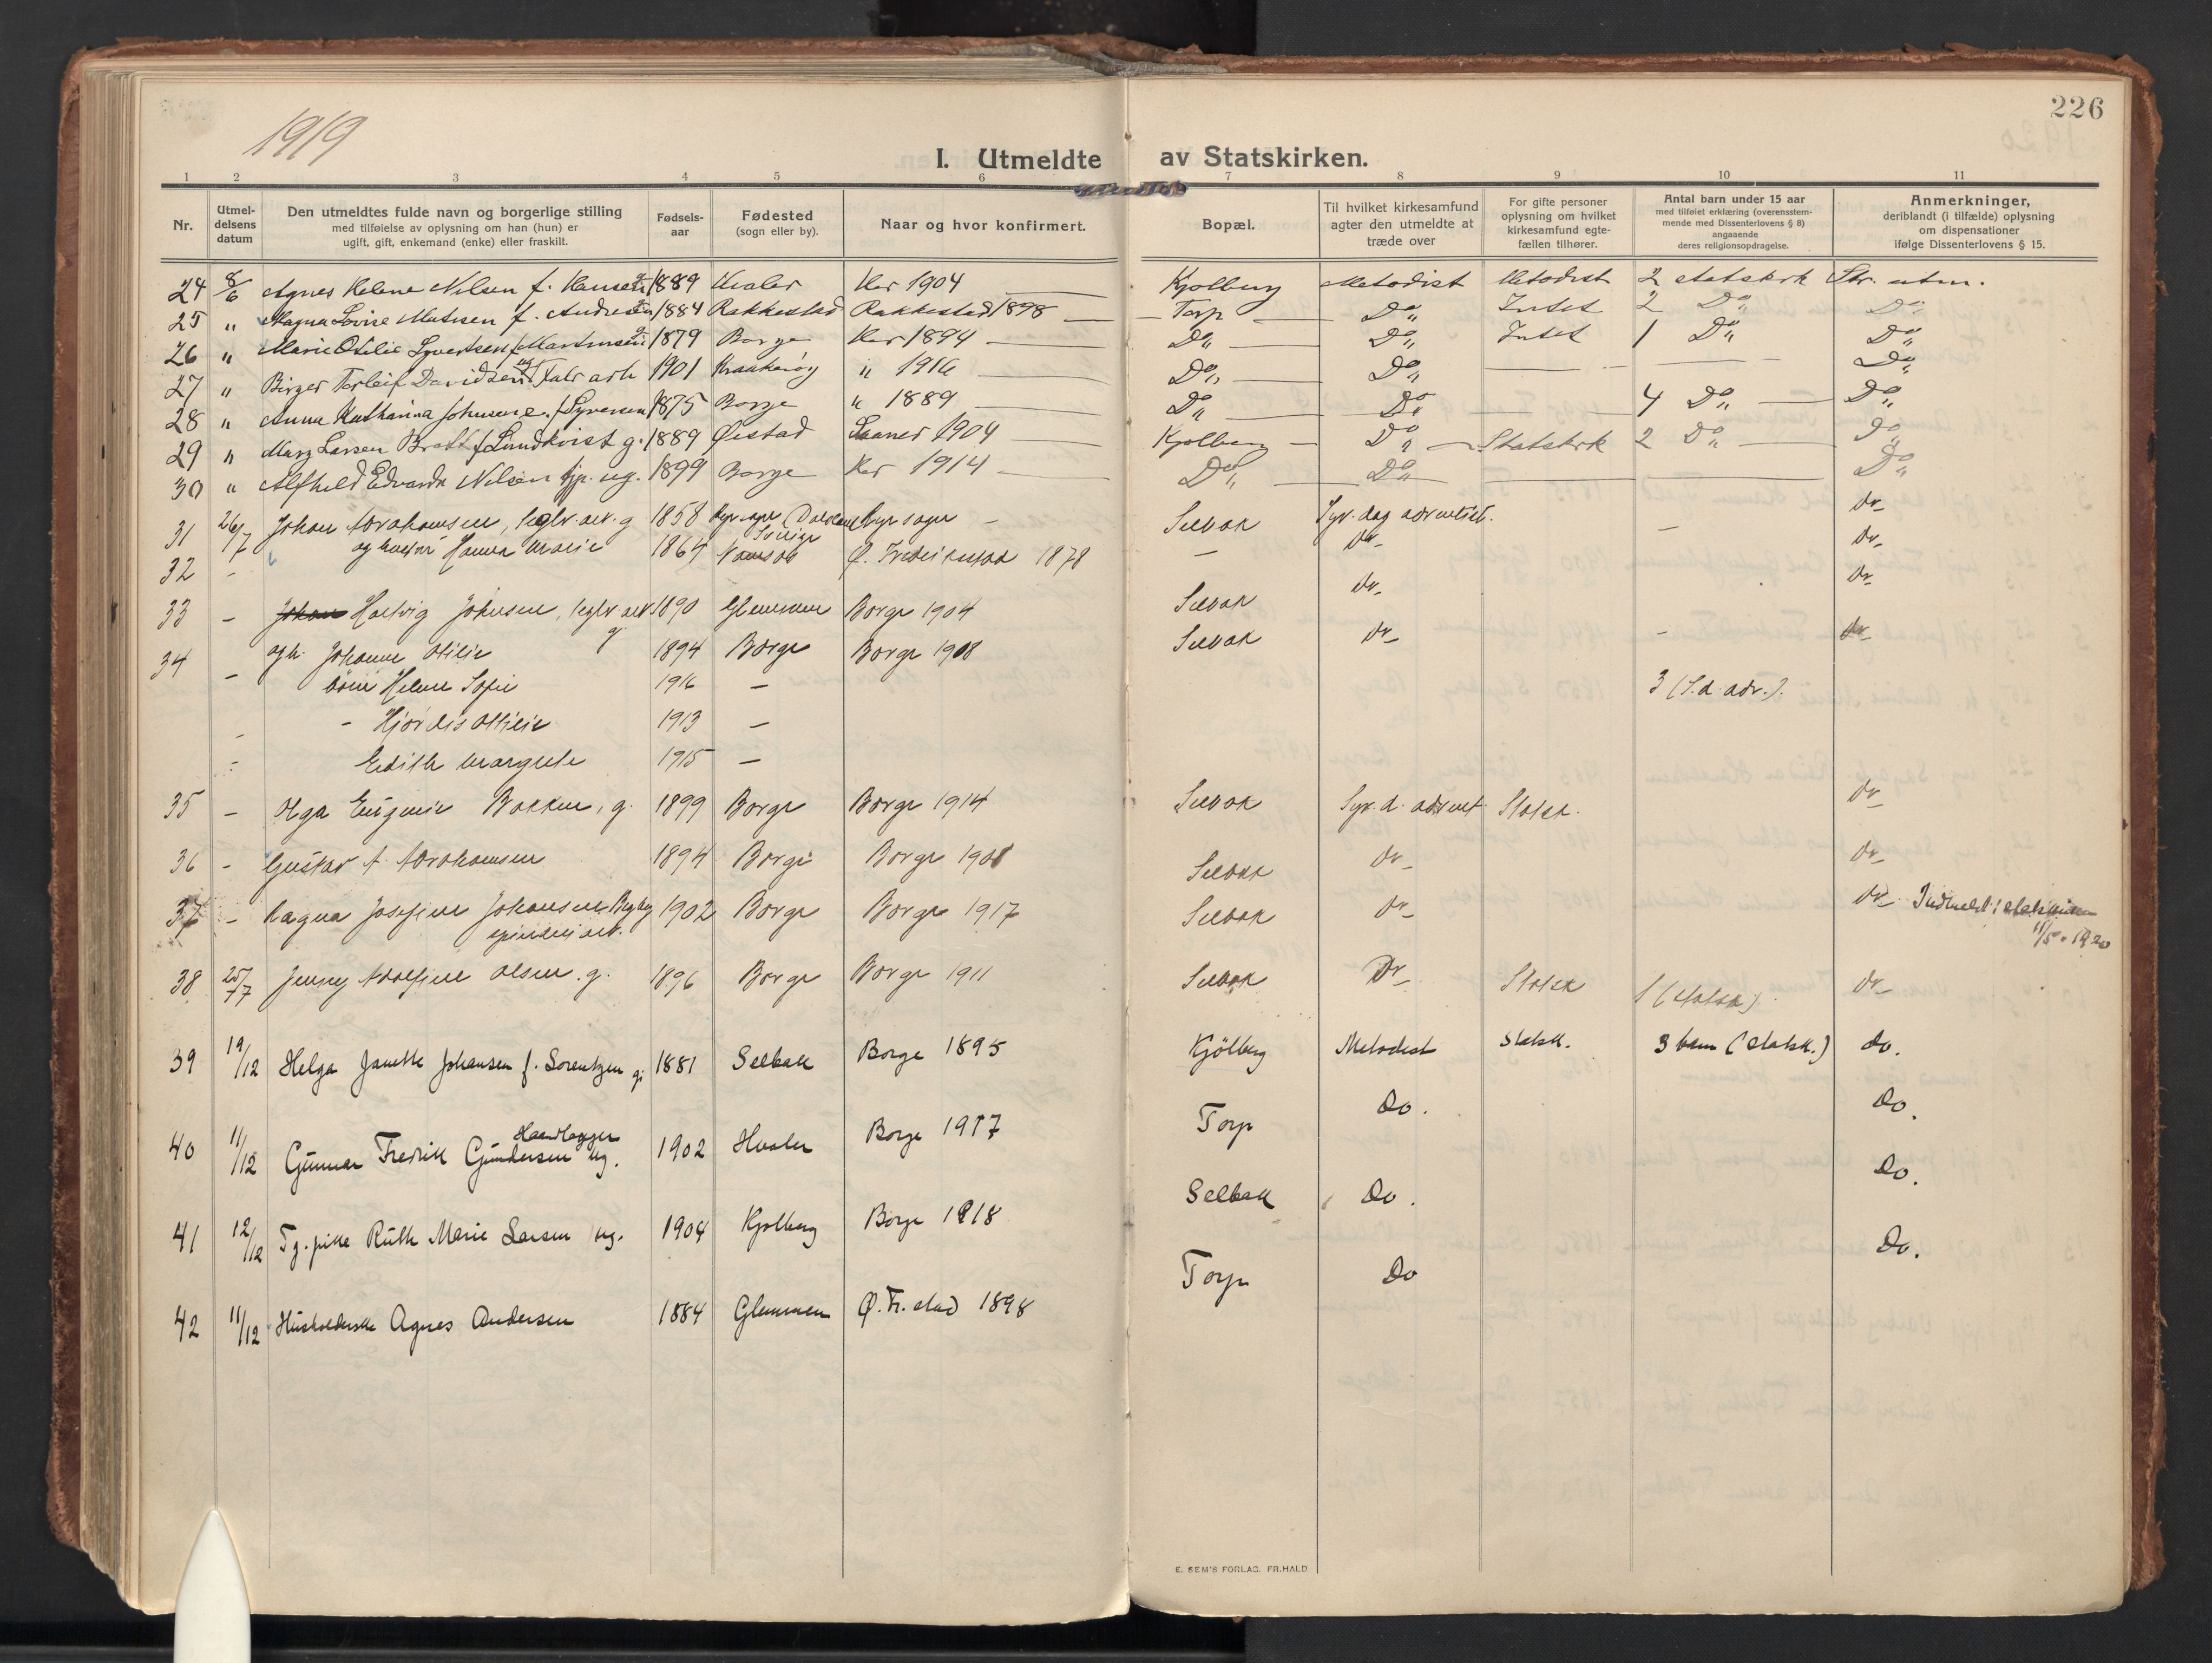 226
1919
I. Utmeldte av Statskirken.
1 2 3 4 5 6 7 8 9 10 11
Nr.
Utmel-
delsens
datum
Den utmeldtes fulde navn og borgerlige stilling
med tilføielse av oplysning om han (hun) er
ugift, gift, enkemand (enke) eller fraskilt.
Fødsels-
aar
Fødested
(sogn eller by).
Naar og hvor konfirmert.
Bopæl.
Til hvilket kirkesamfund
agter den utmeldte at
træde over
For gifte personer
oplysning om hvilket
kirkesamfund egte-
fællen tilhører.
Antal barn under 15 aar
med tilføiet erklæring (overensstem-
mende med Dissenterlovens § 8)
angaaende
deres religionsopdragelse.
Anmerkninger,
deriblandt (i tilfælde) oplysning
om dispensationer
ifølge Dissenterlovens § 15.
24 8/6 Agnes Helene Nilsen f. Hansen g. 1889 Hvaler Her 1904 Kjølberg Metodist Metodist 2 statskirk Skr. utm.
25 " Magna Lovise Matisen f. Andresen 1884 Rakkestad Rakkestad 1898 Torp Do Intet 2 Do Do
26 " Marie Otilie Syvertsen f. Martinsen 1879 Borge Her 1894 Do Do Intet 1 Do Do
27 " Birger Torleif Davidsen ug. Fabr arb 1901 Kraakerøy " 1916 Do Do Do
28 " Anna Katharina Johnsen e. f. Syversen 1875 Borge " 1889 Do Do 4 Do Do
29 " Mary Larsen Bratt f. Lundkvist g. 1889 Øistad Saaner 1904 Kjølberg Do Statskrk 2 Do Do
30 " Alfhild Edvarda Nilsen tjp. ug. 1899 Borge Her 1914 Do Do Do
31 26/7 Johan Abrahamsen, teglv. arb. g 1858 (Dalsland Sverige Selbak Syv. dag adventist. Do
32 - og hustru Hanna Marie 1864 Ø. Fredrikstad 1878 - Do Do
33 - Johan Hartvig Johnsen, teglv. arb g. 1890 Glemmen Borge 1904 Selbak Do Do
34 - og h. Johanne Otilie 1894 Borge Borge 1908 Selbak Do - Do
børn Helene Sofie 1916 - 3 (S.d. adv.).
- - Hjørdis Ottilie 1913 -
- Edith Margrete 1915 -
35 - Olga Eugenie Bakken, g. 1899 Borge Borge 1914 Selbak Syv. d. advent Statsk. Do
36 - Gustav A. Abrahamsen 1894 Borge Borge 1908 Selbak Do Do
37 - Ragna Josefine Johansen Begby 1902 Borge Borge 1917 Selbak Do Do Indmeldt i statskirken
spinderiarb. 11/5-1920
38 25/7 Jenny Adolfine Olsen. g. 1896 Borge Borge 1911 Selbak Do Statsk 1 (statsk) Do
39 19/12 Helga Janette Johansen f. Sorentzen g. 1881 Selbak Borge 1895 Kjölberg Metodist Statsk. 3 barn (Statsk.) Do.
40 11/12 Gunnar Fredrik Gundersen Haandlagger ug. 1902 Hvaler Borge 1917 Torp Do. Do.
41 12/12 Tj. pike Ruth Marie Larsen ug. 1904 Kjølberg Borge 1918 Selbak Do. Do.
42 11/12 Husholderske Agnes Andersen 1884 Glemmen Ø. Fr. stad 1898 Torp Do Do.
E. SEM'S FORLAG. FR.HALD